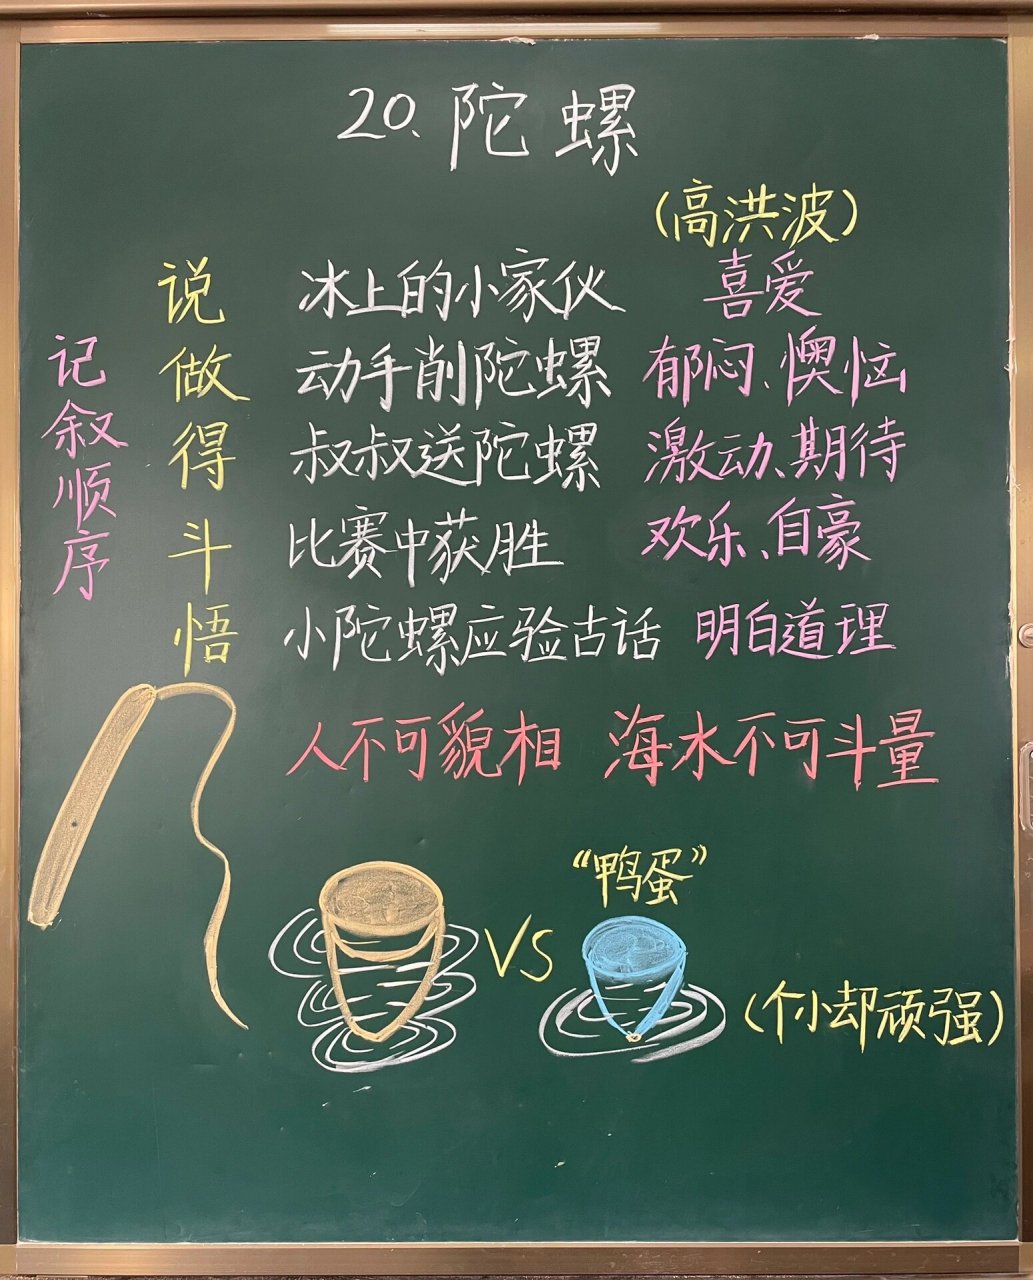 20、陀螺
(高洪波)
记叙顺序
说 冰上的小家伙 喜爱
做 动手削陀螺 郁闷、懊恼
得 叔叔送陀螺 激动、期待
斗 比赛中获胜 欢乐、自豪
悟 小陀螺应验古话 明白道理
人不可貌相 海水不可斗量
“鸭蛋”
VS
(个小却顽强)